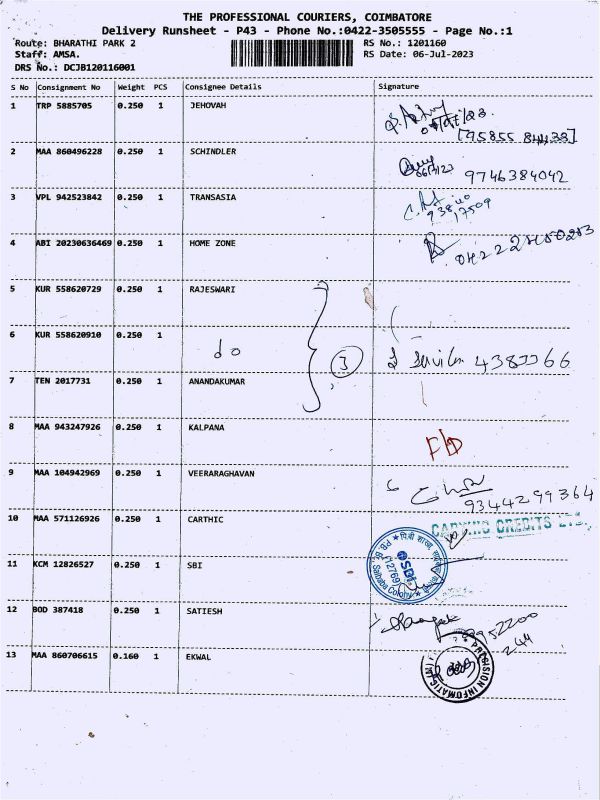 THE PROFESSIONAL COURIERS, COIMBATORE
Delivery Runsheet - P43 - Phone No.:0422-3505555 - Page No.:1
Route: BHARATHI PARK 2 RS No.: 1201160
Staff: AMSA. RS Date: 06-Jul-2023
DRS No.: DCJB120116001
S No Consignment No Weight PCS Consignee Details Signature
1 TRP 5885705 0.250 1 JEHOVAH
[95855 84433]
2 MAA 860496228 0.250 1 SCHINDLER
9746384042
3 VPL 942523842 0.250 1 TRANSASIA
93840
17509
4 ABI 20230636469 0.250 1 HOME ZONE
5 KUR 558620729 0.250 1 RAJESWARI
6 KUR 558620910 0.250 1 do
3
7 TEN 2017731 0.250 1 ANANDAKUMAR
8 MAA 943247926 0.250 1 KALPANA
9 MAA 104942969 0.250 1 VEERARAGHAVAN
9344299364
10 MAA 571126926 0.250 1 CARTHIC
CREDITS LTD.
11 KCM 12826527 0.250 1 SBI
SBI
12 BOD 387418 0.250 1 SATIESH
9952200
244
13 MAA 860706615 0.160 1 EKWAL
PRECISION INFOMATIC (M)